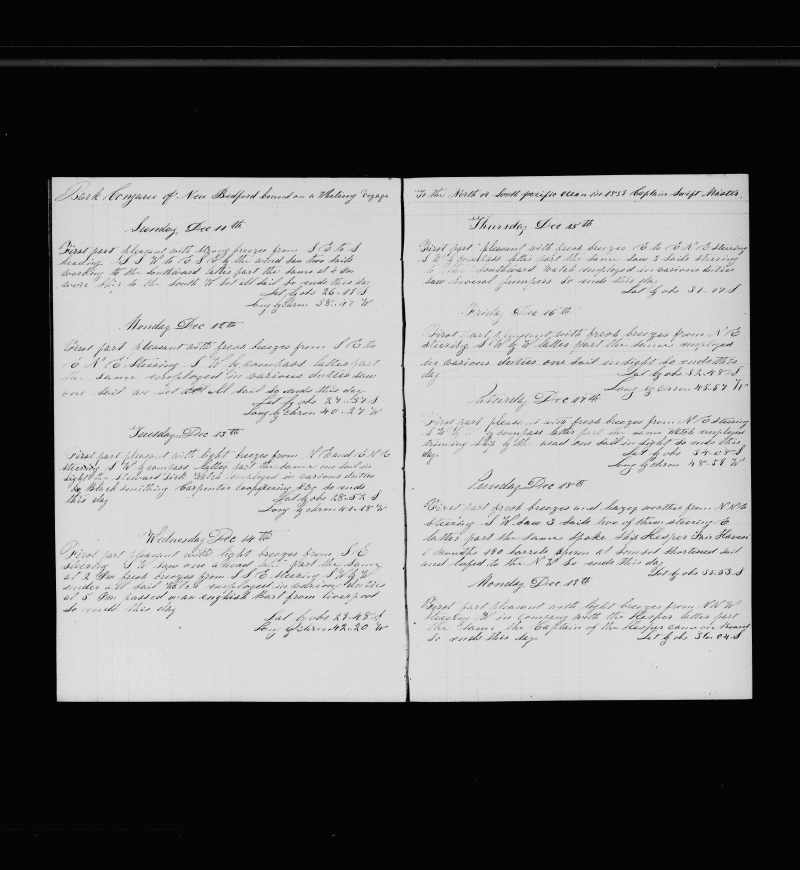 Bark Congaree of New Bedford bound on a Whaling Voyage
Sunday Dec 11th
First part pleasant with strong breezes from S E to S
heading S S W to E S E by the wind saw two sails
working to the southward latter part the same at 4 Am
were ship to the South W set all sail So ends this day
Lat by obs 26..18 S
Long by chron 38..47 W
Monday Dec 12th
First part pleasant with fresh breezes from S E to
E N E steering S W by compass latter part
the same employed in various duties saw
one sail all sail so ends this day
Lat by obs 27..57 S
Long by chron 40..27 W
Tuesday Dec 13th
First part pleasant with light breezes from N E and E N E
steering S W by compass latter part the same one sail in
sight the steward sick watch employed in various duties
Black smithing Carpenter coopering &c so ends
this day Lat by obs 28..52 S
Long by chron 41..18 W
Wednesday Dec 14th
First part pleasant with light breezes from S E
steering S W saw one ahead latter part the same
at 2 Pm fresh breezes from S S E steering S W by W
under all sail watch employed in various duties
at 5 Pm passed an english Bark from liverpool
so ends this day
Lat by obs 29..48 S
Long by chron 42..20 W
To the North or South pacific ocean in 1855 Captain Swift Master
Thursday Dec 15th
First part pleasant with fresh breezes E to E N E steering
S W by compass latter part the same saw 3 sails steering
to the southward watch employed in various duties
saw several jumpers so ends this day
Lat by obs 31..17 S
Friday Dec 16th
First part pleasant with fresh breezes from N E
steering S W by W latter part the same employed
in various duties one sail in sight so ends this
day Lat by obs 32..48 S
Long by chron 45..57 W
Saturday Dec 17th
First part pleasant with fresh breezes from N E steering
S W by compass latter part the same watch employed
one sail in sight so ends this
day Lat by obs 34..08 S
Long by chron 48..58 W
Sunday Dec 18th
First part fresh breezes and hazey weather from N N E
steering S W saw 3 sails two of them steering E
latter part the same spoke Ship Hesper Fair Haven
6 months 190 barrels sperm at sunset shortened sail
and luffed to the N W So ends this day
Lat by obs 35..53 S
Monday Dec 19th
First part pleasant with light breezes from N W
steering W in company with the Hesper latter part
the same the Captain of the Hesper came on Board
so ends this day Lat by obs 36..04 S